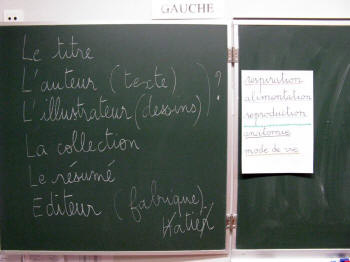 GAUCHE
Le titre
L'auteur (texte)
L'illustrateur (dessins) ?
La collection
Le résumé
Editeur (fabrique)
Hatier
respiration
alimentation
reproduction
anatomie
mode de vie